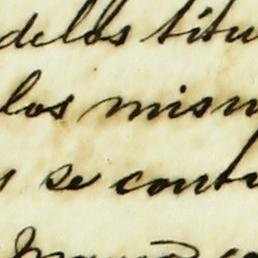 delos titu
los mism
se contr